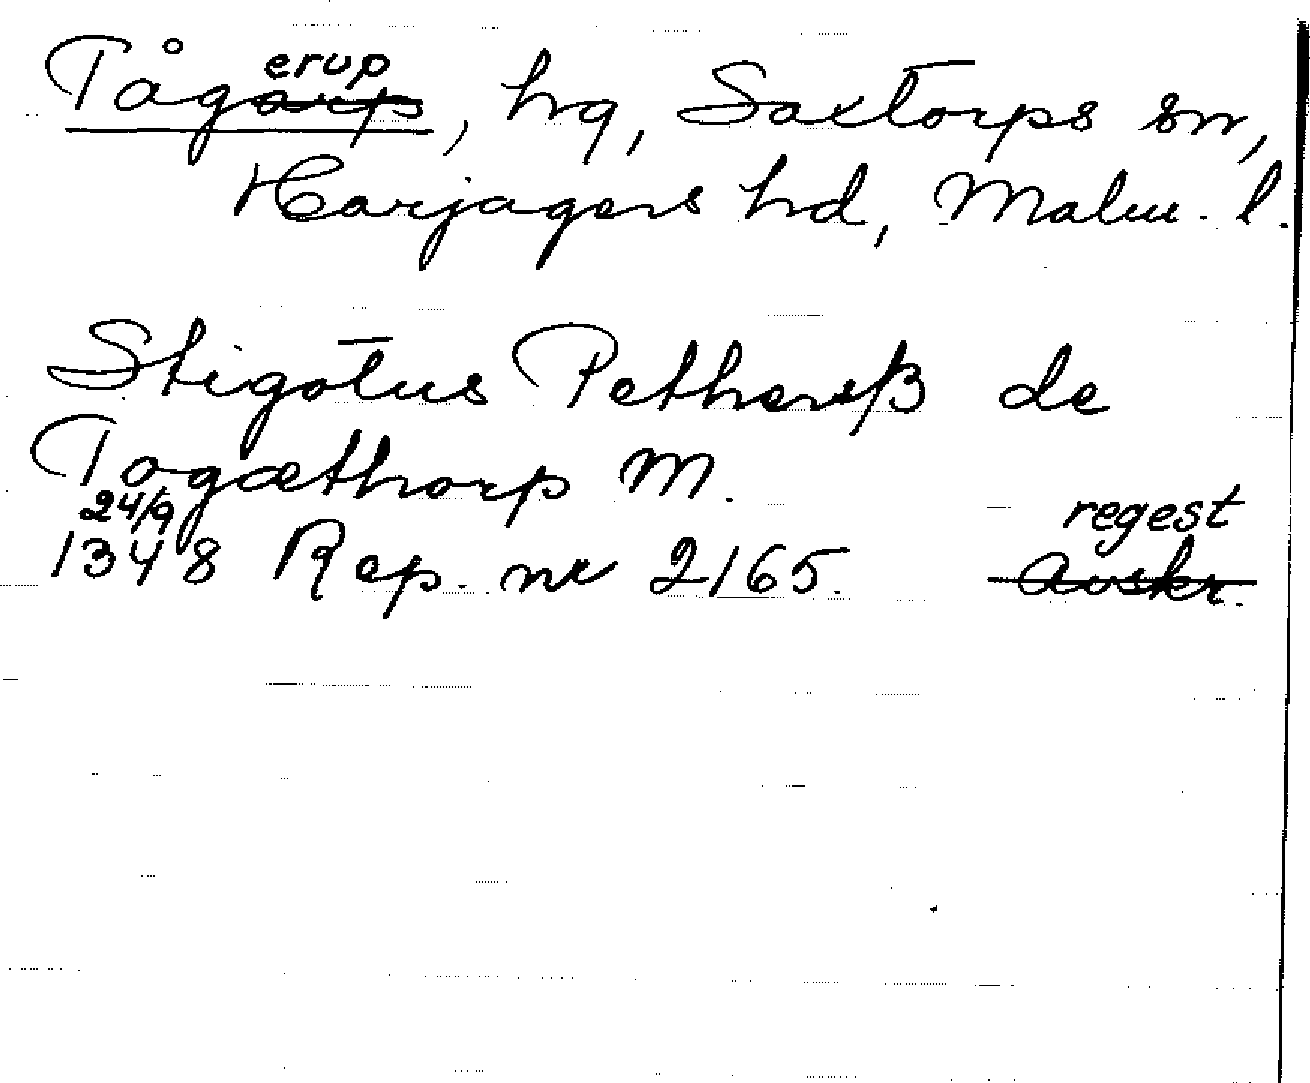 Tågerup, hg, Saxtorps sn,
Harjagers hd, Malm. l.
Stigotus Pethersß de
Togæthorp M.
24/9
1348 Rep. nr 2165. regest